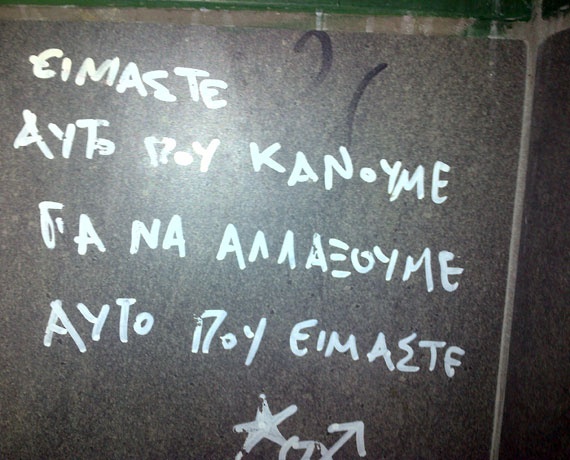 ΕΙΜΑΣΤΕ
ΑΥΤΟ ΠΟΥ ΚΑΝΟΥΜΕ
ΓΙΑ ΝΑ ΑΛΛΑΞΟΥΜΕ
ΑΥΤΟ ΠΟΥ ΕΙΜΑΣΤΕ